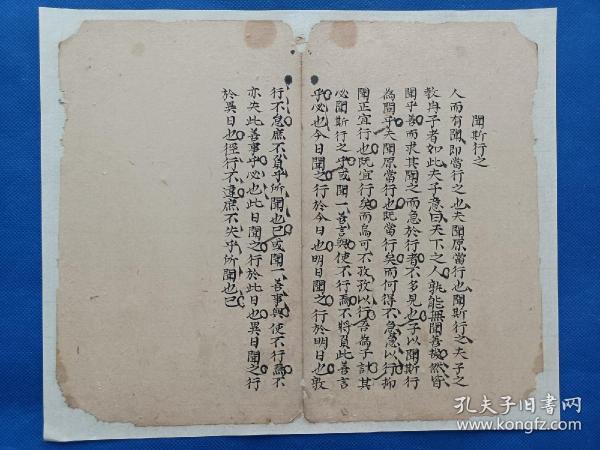 聞斯行之
人而有聞即當行之也夫聞原當行也聞斯行之夫子之
教冉子者如此夫子意曰天下之人孰能無聞善哉然皆
聞乎善而求其聞之而急於行者不多見也子以聞斯行
為問乎夫聞原當行也既當行矣而何得不急急以行抑
聞正宜行也既宜行矣而烏可不孜孜以行吾為子計其
必聞斯行之乎或聞一善言與使不行焉不將負此善言
乎必也今日聞之行於今日也明日聞之行於明日也敦
行不怠庶不負乎所聞也已或聞一善事與使不行焉不
亦失此善事乎必也此日聞之行於此日也異日聞之行
於異日也徑行不違庶不失乎所聞也已
孔夫子旧书网
www.kongfz.com